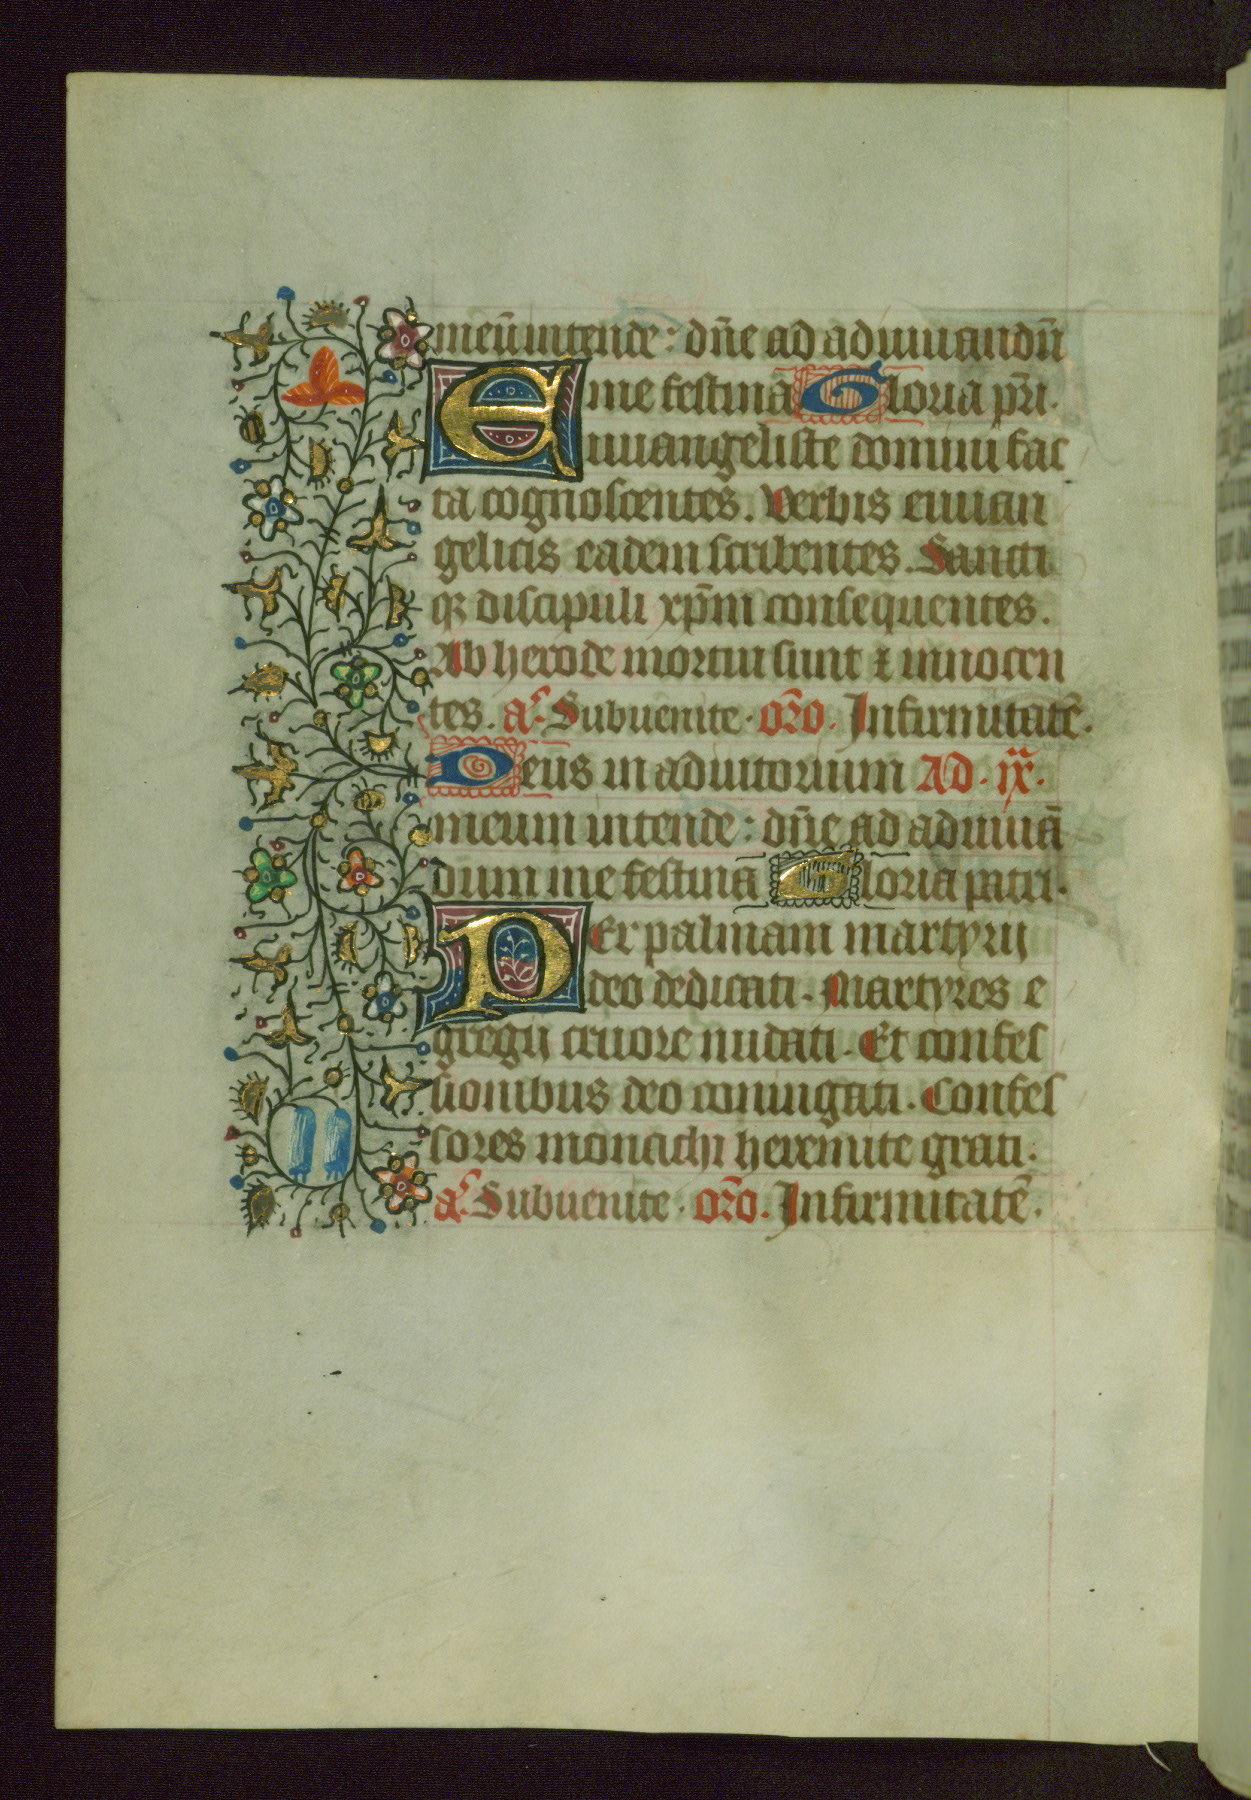 meū intende: dn̄e ad adiuuandū
me festina Gloria pr̄i.
Euuangeliste domini fac
ta cognoscentes. Verbis euuan
gelicis eadem scribentes. Sancti
qꝫ discipuli xp̄m consequentes.
Ab herode mortui sunt ⁊ innocen
tes. añ. Subuenite. or̄o. Infirmitatē.
Deus in adiutorium Ad. ix.
meum intende: dn̄e ad adiuuā
dum me festina Gloria patri.
Per palmam martyrij
deo dedicati. Martyres e
gregij cruore nudati. Et confes
sionibus deo coniugati. Confes
sores monachi heremite grati.
añ. Subuenite. or̄o. Infirmitatē.